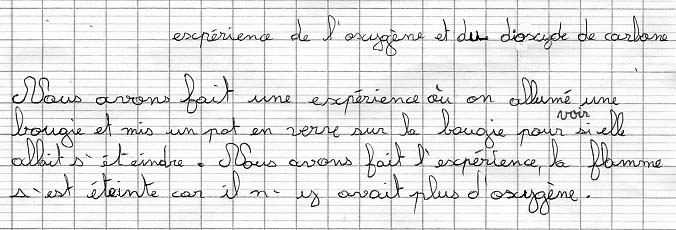 expérience de l'oxygène et du dioxyde de carbone
Nous avons fait une expérience où on allumé une
bougie et mis un pot en verre sur la bougie pour voir si elle
allait s'éteindre. Nous avons fait l'expérience, la flamme
s'est éteinte car il n'y avait plus d'oxygène.